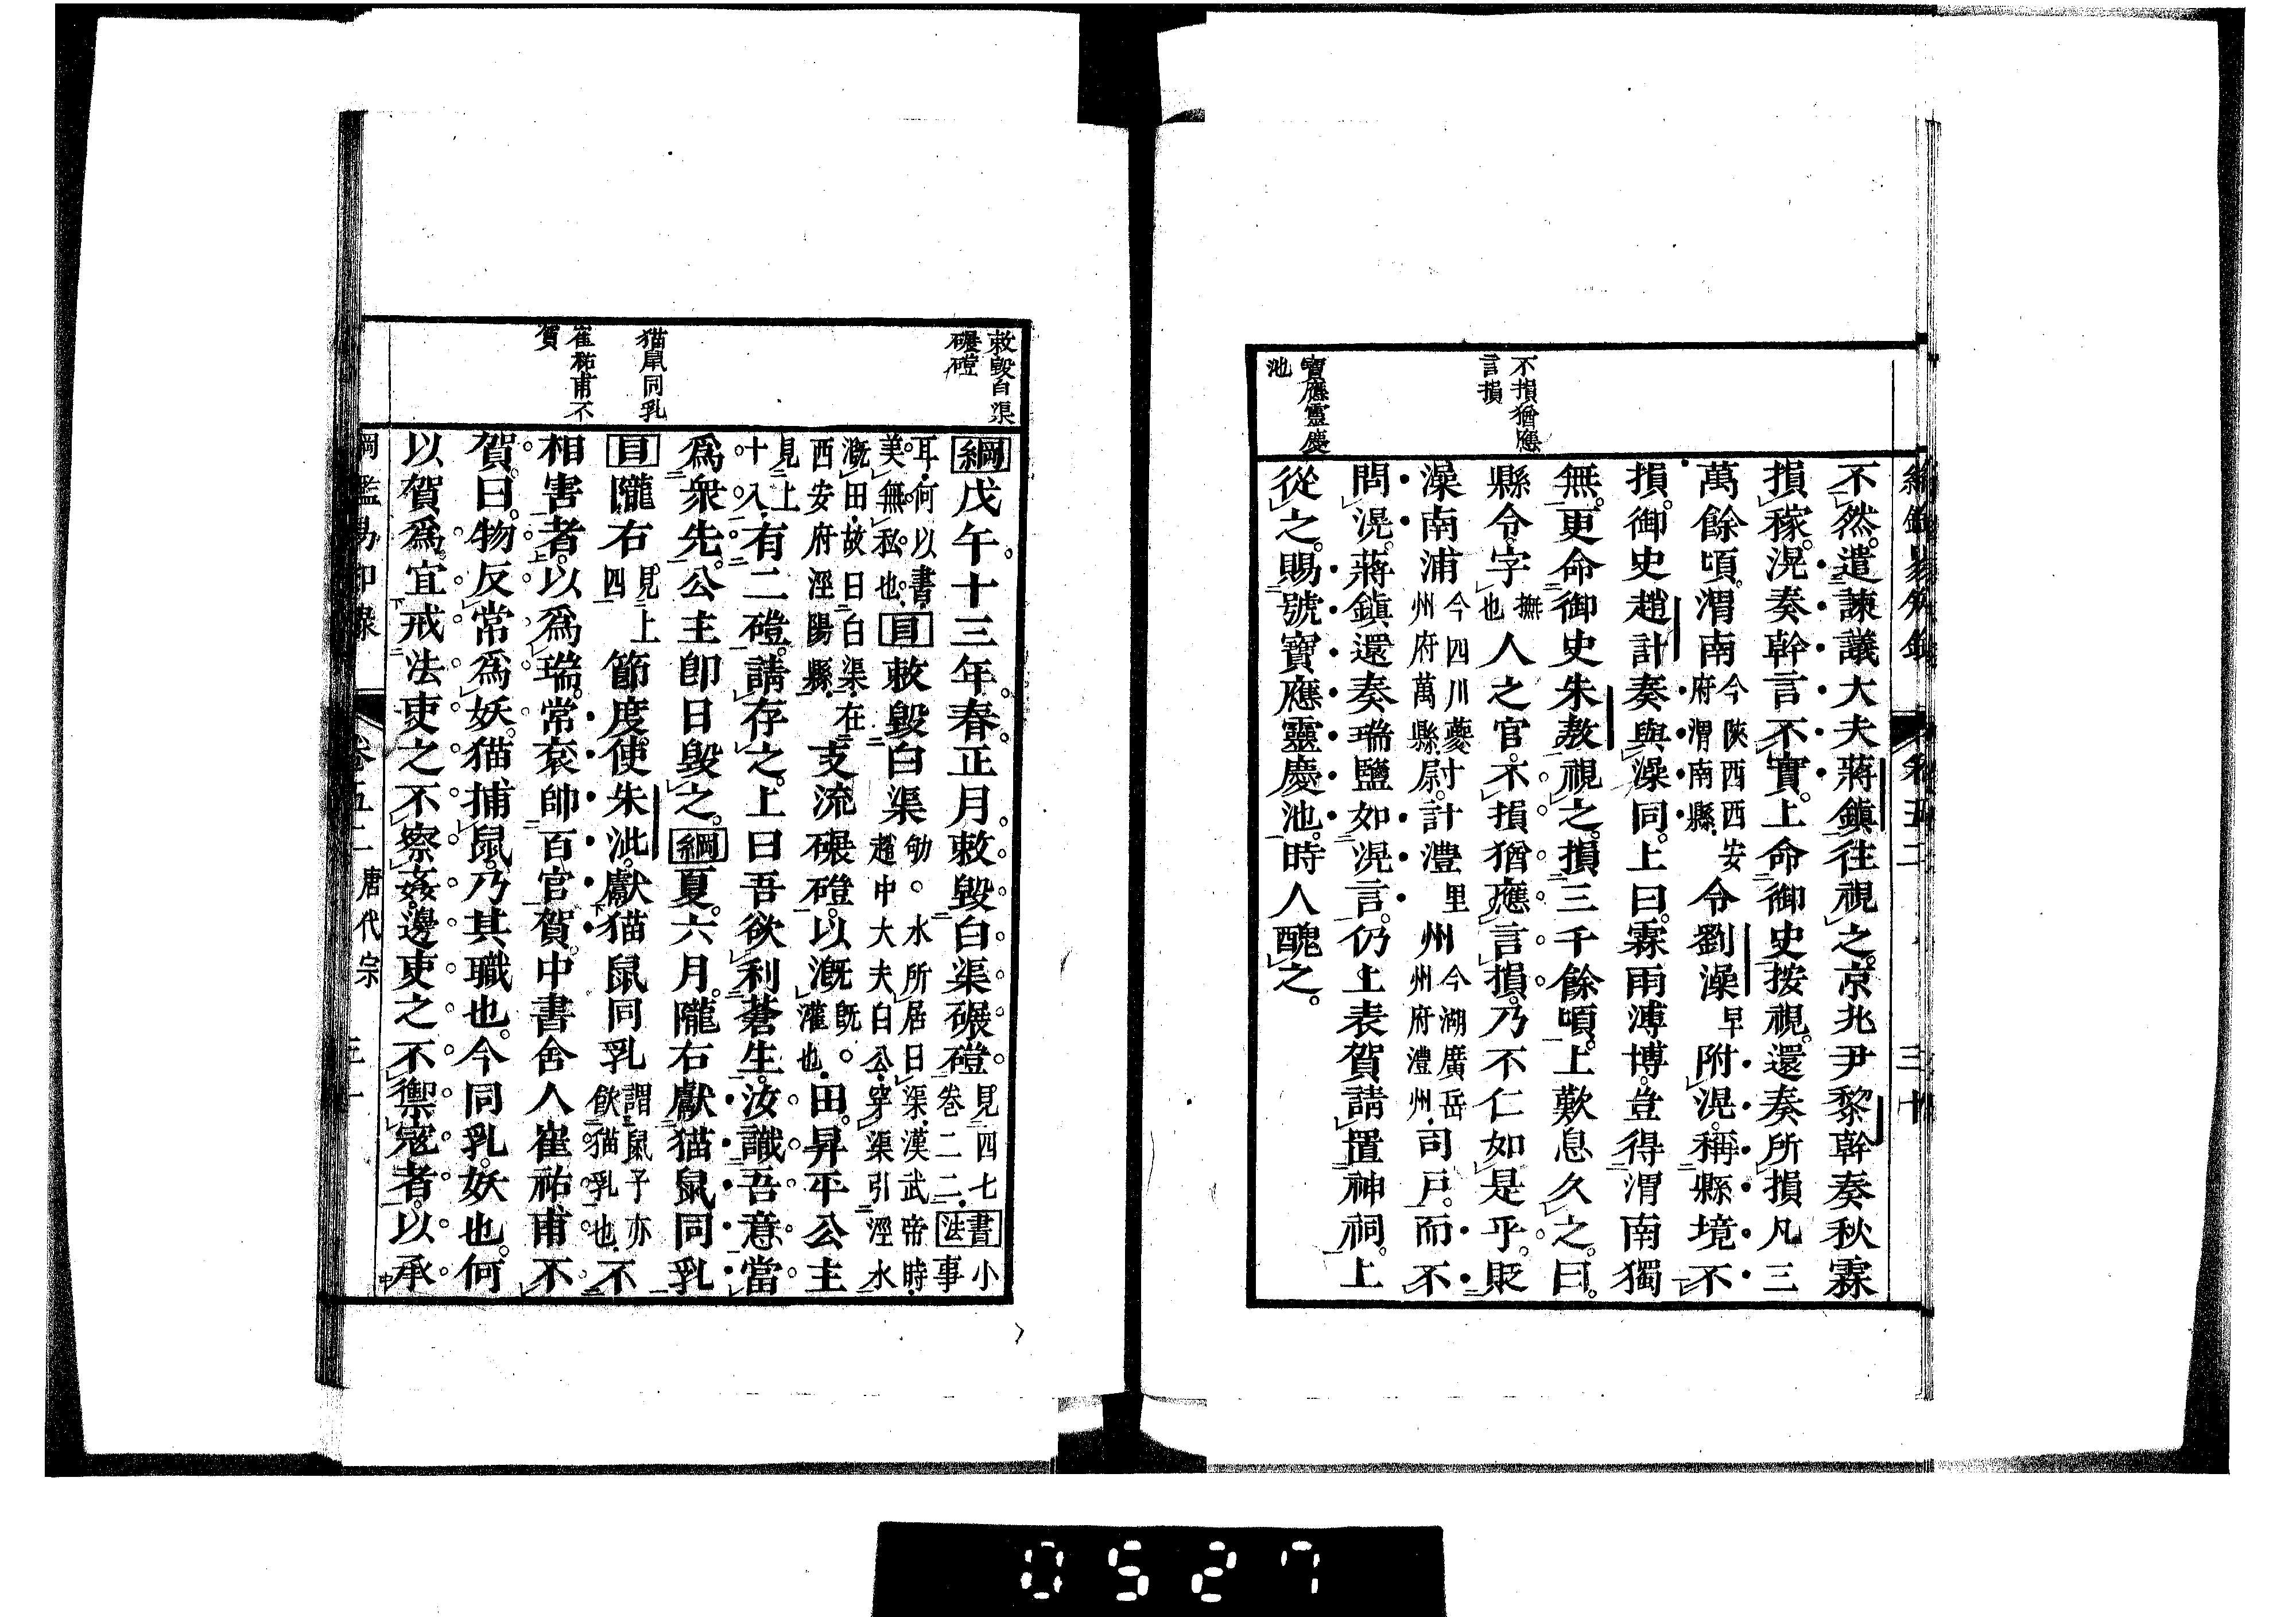 不損猶應
言損
寶應靈慶
池
不然。遣諫議大夫蔣鎭往視之。京兆尹黎幹奏秋霖
損稼。滉奏幹言不實。上命御史按視。還奏所損凡三
萬餘頃。渭南今陝西西安府渭南縣。令劉澡早附滉。稱縣境不
損。御史趙計奏與澡同。上曰。霖雨溥博。豈得渭南獨
無。更命御史朱敖視之。損三千餘頃。上歎息久之。曰。
縣令。字撫也人之官。不損猶應言損。乃不仁如是乎。貶
澡南浦今四川夔州府萬縣尉。計澧里州今湖廣岳州府澧州。司戶。而不
問滉。蔣鎭還奏瑞鹽如滉言。仍上表賀。請置神祠。上
從之。賜號寶應靈慶池。時人醜之。
敕毀白渠
碾磑
猫鼠同乳
崔祐甫不
賀
綱戊午。十三年。春。正月。敕毀白渠碾磑。見四七卷二二。書法小事
耳。何以書。美無私也。目敕毀白渠劬。水所居曰渠。漢武帝時。趙中大夫白公。穿渠引涇水
漑田。故曰白渠。在西安府涇陽縣支流碾磑。以漑旣。灌也。田。昇平公主
見上十入。有二磑。請存之。上曰。吾欲利蒼生。汝識吾意。當
爲衆先。公主卽日毀之。綱夏。六月。隴右獻猫鼠同乳
目隴右見上四節度使朱泚。獻猫鼠同乳謂鼠子亦飮猫乳也。不
相害者。以爲瑞。常衮帥百官賀。中書舍人崔祐甫不
賀。曰。物反常爲妖。猫捕鼠。乃其職也。今同乳。妖也。何
以賀爲。宜戒法吏之不察姦。邊吏之不禦寇者。以承
卷五二 唐代宗